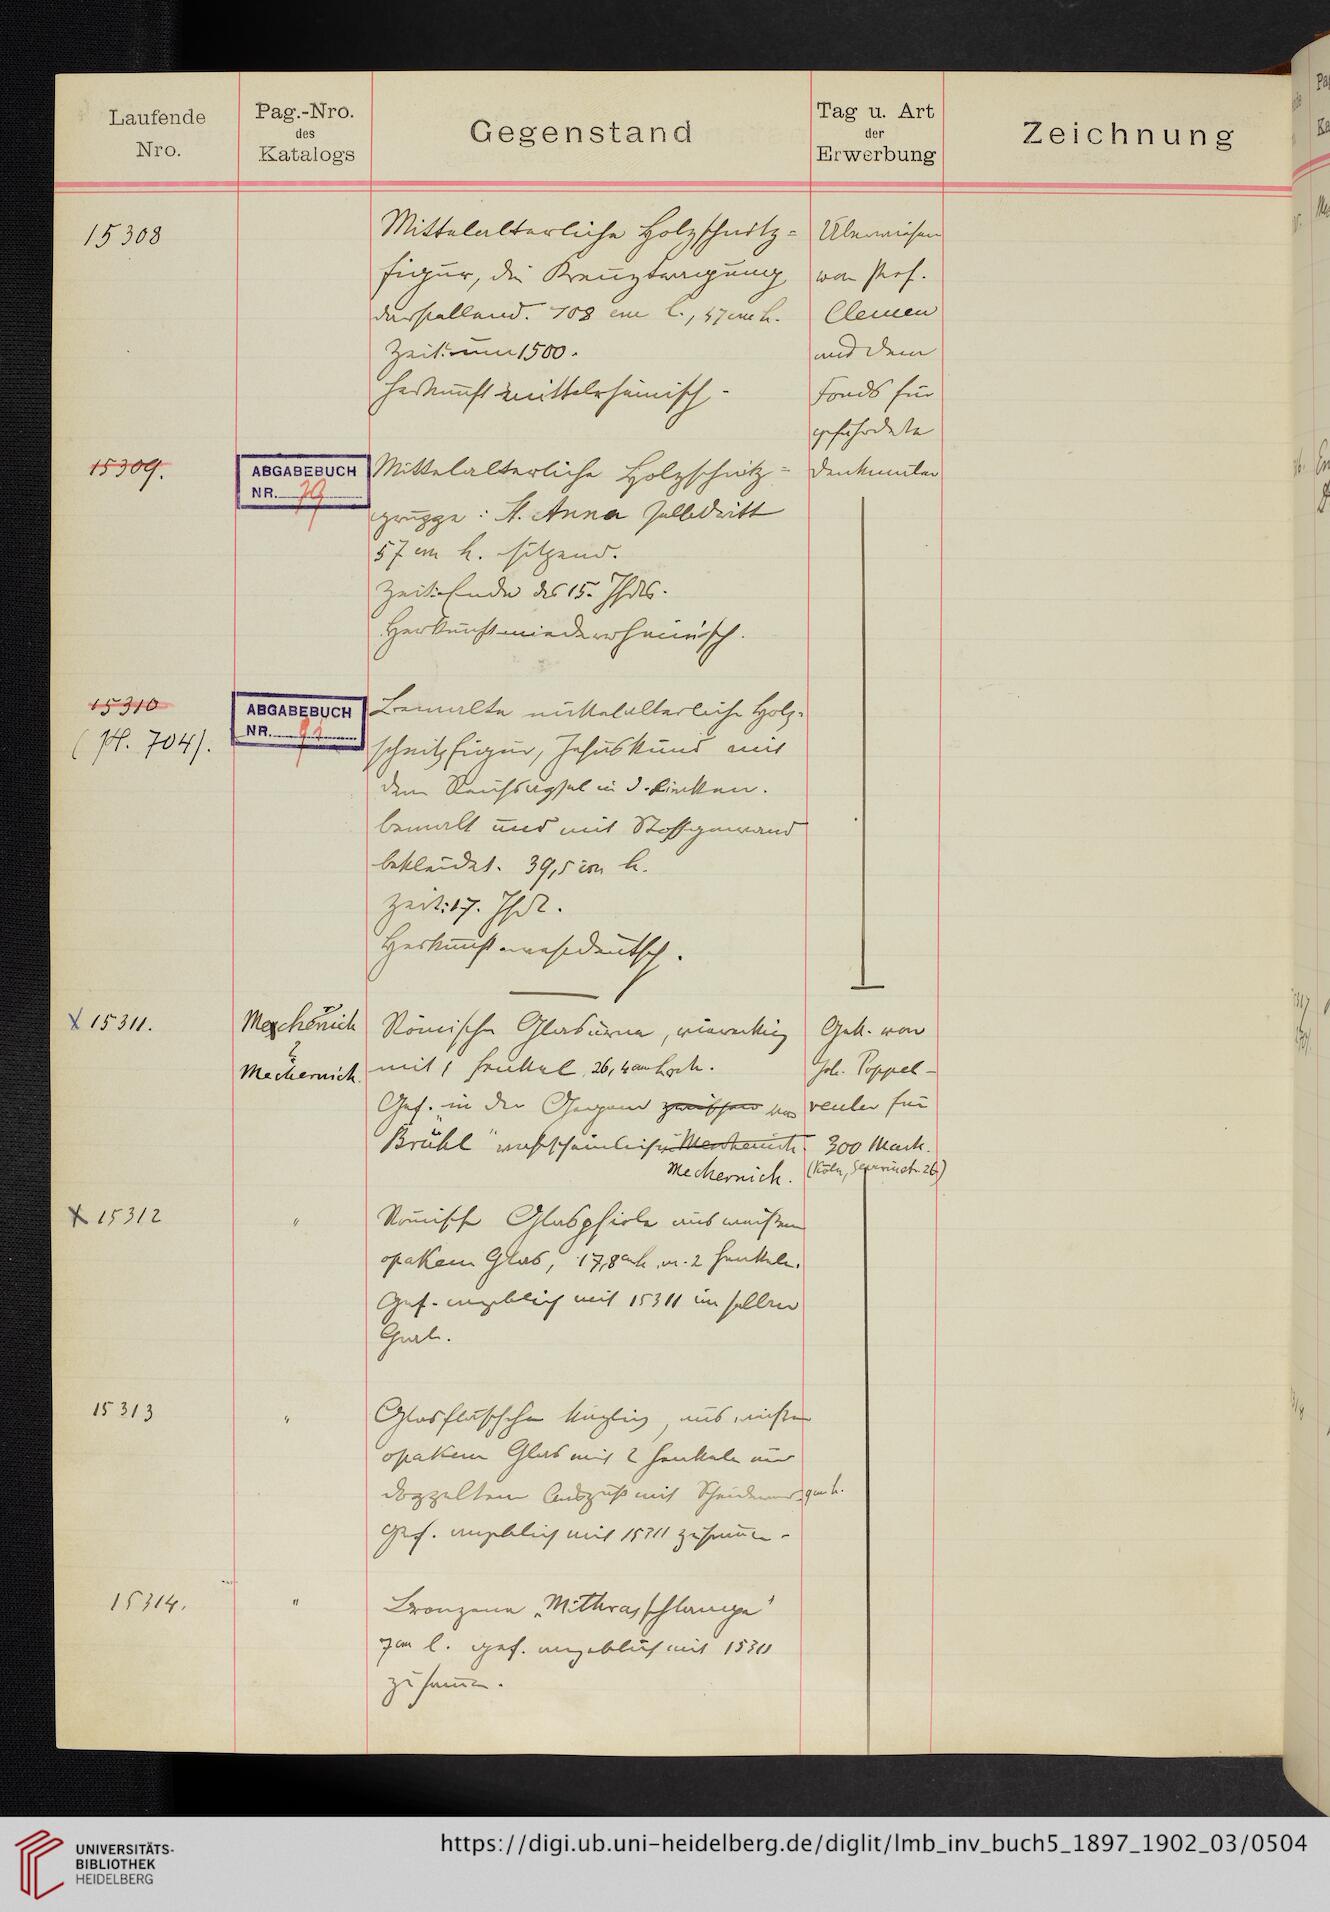 Laufende
Nro.
Pag.-Nro.
des
Katalogs
Gegenstand
Tag u. Art
der
Erwerbung
Zeichnung
15308
Mittelalterliche Holzschnitz=
figur, die Kreuztragung
darstellend. 108 cm l., 47 cm h.
Zeit: um 1500.
Herkunft mittelrheinisch.
Überwiesen
von Prof.
Clemen
aus dem
Fonds für
gefährdete
Denkmäler
15309.
ABGABEBUCH
NR. 79
Mittelalterliche Holzschnitz=
gruppe: St. Anna selbdritt
57 cm h. sitzend.
Zeit: Ende des 15. Jhdts.
Herkunft niederrheinisch.
15310
(Pf. 704).
ABGABEBUCH
NR.
Bemalte mittelalterliche Holz-
schnitzfigur, Jesuskind mit
dem Reichsapfel in d. Linken.
bemalt und mit Stoffgewand
bekleidet. 39,5 cm h.
Zeit: 17. Jhdt.
Herkunft westdeutsch.
X 15311.
Mechernich
?
Mechernich.
Römische Glasurne, viereckig
mit 1 Henkel 26,4 cm hoch.
Gef. in der Gegend zwischen von
"Brühl" wahrscheinlich Mechernich.
Mechernich.
Gek. von
Joh. Poppel-
reuter für
300 Mark.
(Köln, Severinstr. 26)
X 15312
"
Römische Glasphiole aus weißem
opakem Glas, 17,8 cm h. m. 2 Henkeln.
Gef. angeblich mit 15311 im selben
Grab.
15313
"
Glasfläschchen kuglig, aus weißem
opakem Glas mit 2 Henkeln und
doppeltem Ausguß mit 9 cm h.
Gef. angeblich mit 15311 zusammen.
15314.
"
Bronzene „Mithrasschlange"
7 cm l. gef. angeblich mit 15311
zusammen.
UNIVERSITÄTS-
BIBLIOTHEK
HEIDELBERG
https://digi.ub.uni-heidelberg.de/diglit/lmb_inv_buch5_1897_1902_03/0504